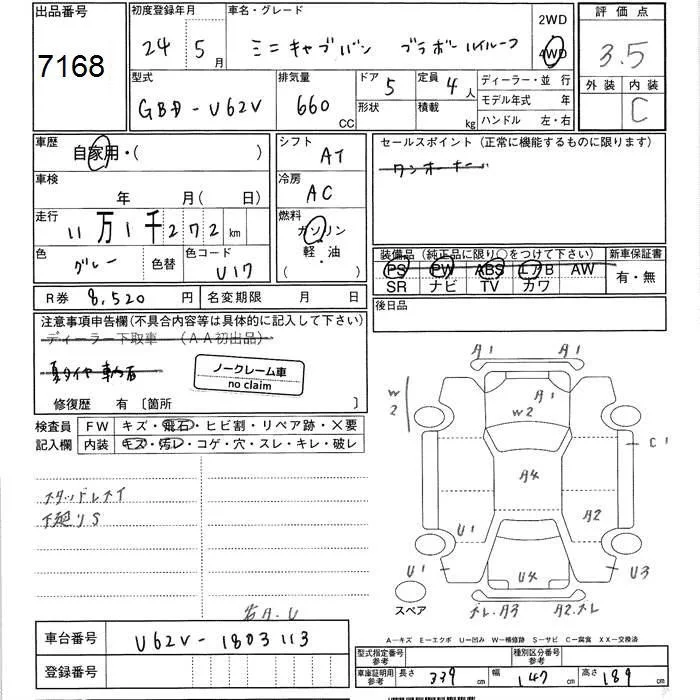 出品番号
7168
初度登録年月
24 年 5 月
車名・グレード
ミニキャブバン ブラボーハイルーフ
2WD
4WD
評価点
3.5
外装 内装
C
型式
GBD-U62V
排気量
660 CC
ドア 5
形状
定員 4 人
積載 kg
ディーラー・並行
モデル年式 年
ハンドル 左・右
車歴 自家用・( )
シフト
AT
セールスポイント(正常に機能するものに限ります)
ワンオーナー
車検 年 月( 日)
冷房
AC
走行 11万1千272km
燃料
ガソリン
軽・油
( )
色 グレー 色替 色コード U17
装備品(純正品に限り○をつけて下さい)
PS PW ABS エアB AW
SR ナビ TV カワ
新車保証書
有・無
R券 8,520 円 名変期限 月 日
後日品
注意事項申告欄(不具合内容等は具体的に記入して下さい)
ディーラー下取車 (AA初出品)
ノークレーム車
no claim
修復歴 有〔箇所 〕
検査員 FW キズ・飛石・ヒビ割・リペア跡・X要
記入欄 内装 キズ・汚レ・コゲ・穴・スレ・キレ・破レ
スタッドレスタイ
下廻りS
A1 A1
W2 A1
W2
C1
A4
A2
U1
U1 U4 U3
スペア
A3 A2
車台番号 U62V-1803113
登録番号
A-キズ E-エクボ U-凹み W-補修跡 S-サビ C-腐食 XX-交換済
型式指定番号 参考 種別区分番号 参考
車庫証明用 参考 長さ 339 cm 幅 147 cm 高さ 189 cm